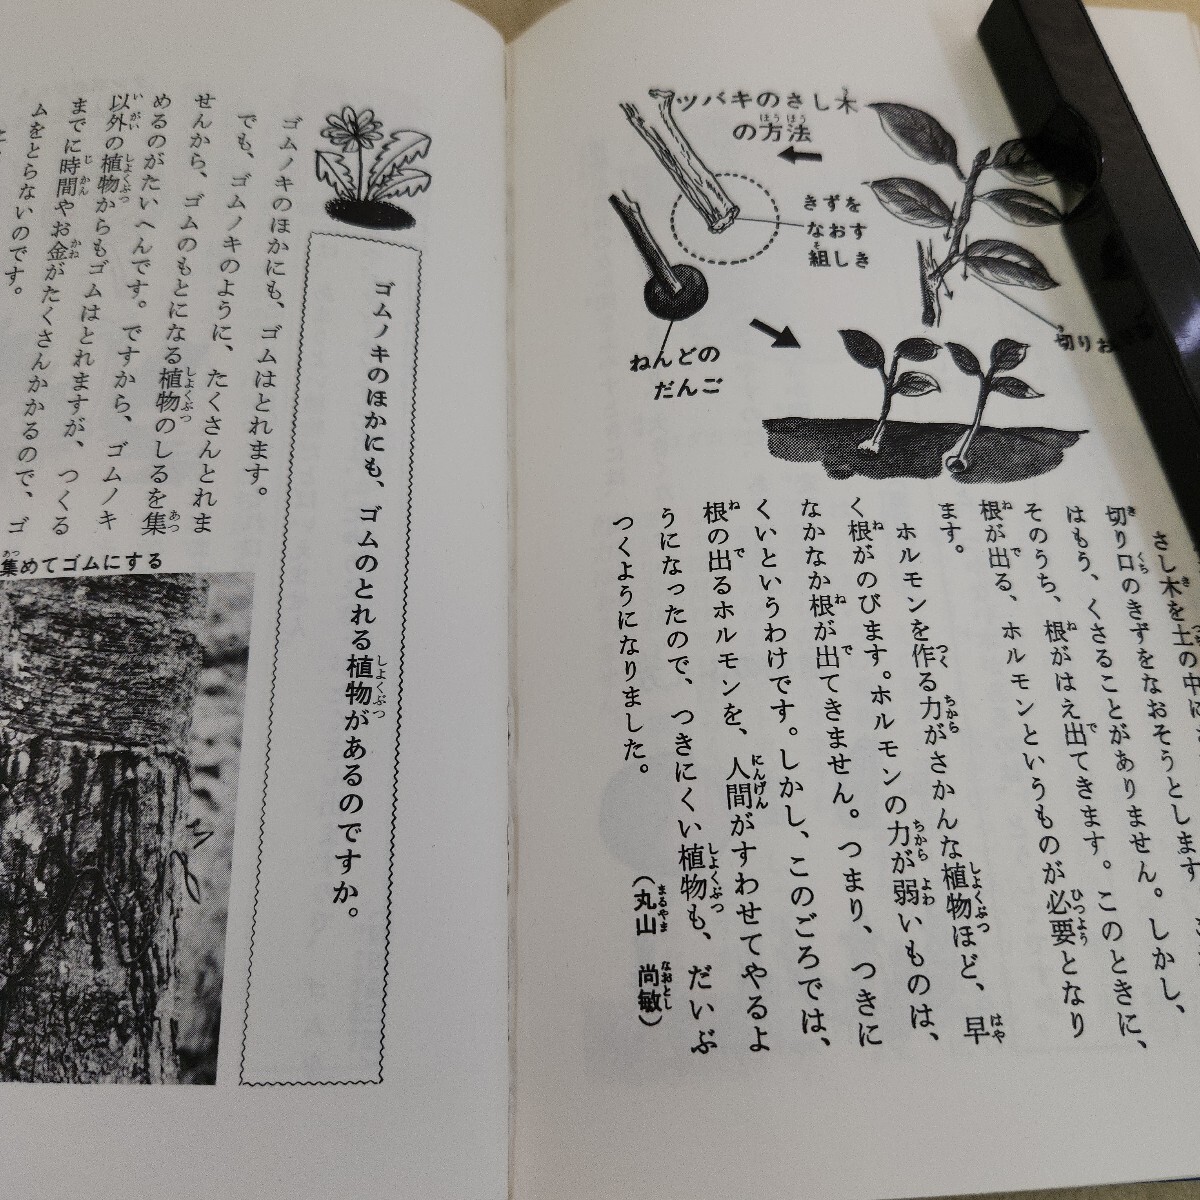 ツバキのさし木
の方法
きずを
なおす
組しき
切りお
ねんどの
だんご
さし木を土の中に
切り口のきずをなおそうとします
はもう、くさることがありません。しかし、
そのうち、根がはえ出てきます。このときに、
根が出る、ホルモンというものが必要となり
ます。
ホルモンを作る力がさかんな植物ほど、早
く根がのびます。ホルモンの力が弱いものは、
なかなか根が出てきません。つまり、つきに
くいというわけです。しかし、このごろでは、
根の出るホルモンを、人間がすわせてやるよ
うになったので、つきにくい植物も、だいぶ
つくようになりました。
(丸山 尚敏)
ゴムノキのほかにも、ゴムのとれる植物があるのですか。
ゴムノキのほかにも、ゴムはとれます。
でも、ゴムノキのように、たくさんとれま
せんから、ゴムのもとになる植物のしるを集
めるのがたいへんです。ですから、ゴムノキ
以外の植物からもゴムはとれますが、つくる
までに時間やお金がたくさんかかるので、ゴ
ムをとらないのです。
集めてゴムにする